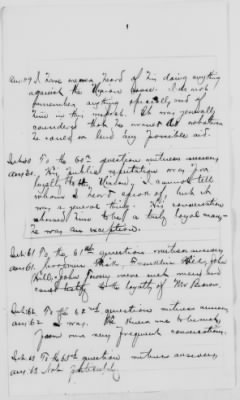 Ans 59 I have never heard of his doing anything
against the Union cause. I do not
remember anything specially said of
him in this . It was generally
considered that he was
to or lend any possible aid.
Int. 60 To the 60th question witness answers
ans 60. His public reputation was for
loyalty to the Union, I cannot tell
whom I heard speak of but it
was a general thing. His conversation
showed him to be a truly loyal man
He was an exception.
Int. 61 To the 61st question witness answers
ans 61. Hill, Franklin Hill, John
Hill, John were such men and
could testify to the loyalty of Mr Brown.
Int. 62 To the 62nd question witness answers
ans 62 I was. He knew me to be such,
from our very frequent conversations.
Int. 63 To the 63rd question witness answers,
ans. 63 Not particularly.